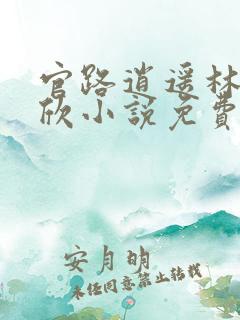 官路逍遥林
欣小说免費
安月明
未经同意禁止转载